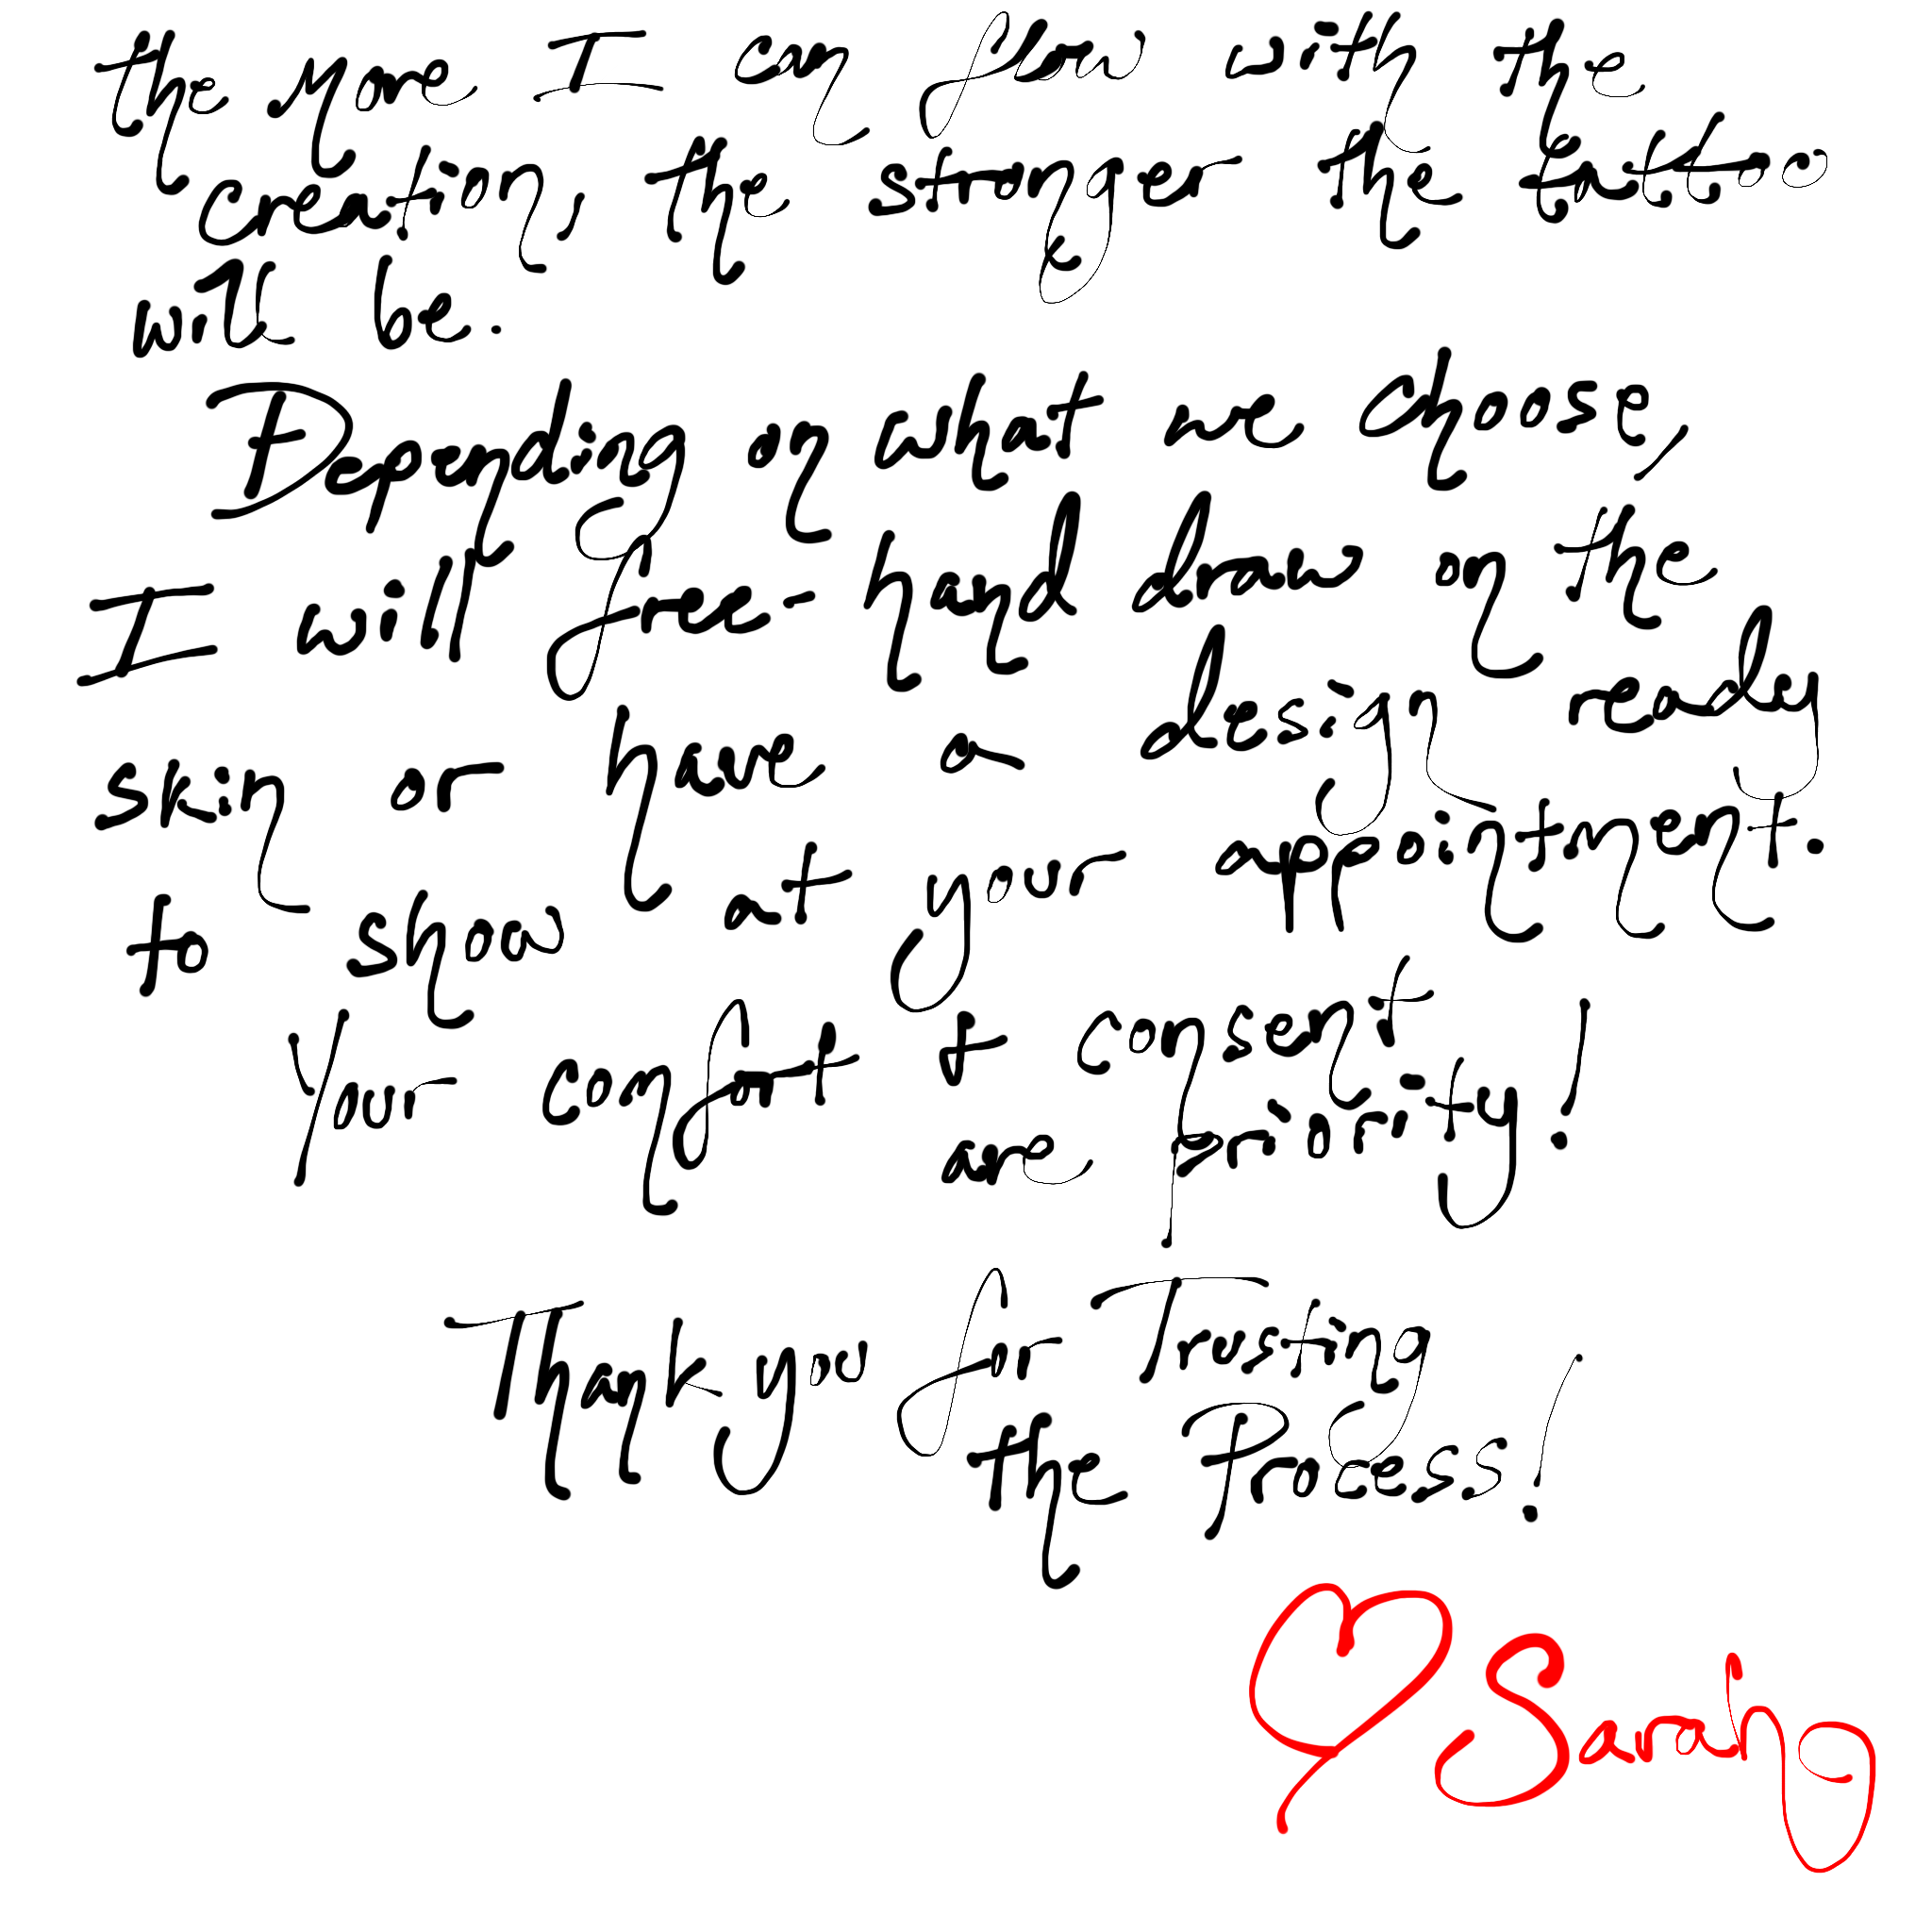 the more I can flow with the
creation, the stronger the tattoo
will be.
Depending on what we choose,
I will free-hand draw on the
skin or have a design ready
to show at your appointment.
Your comfort + consent
are priority!
Thank you for Trusting
the Process!
♡ Sarah